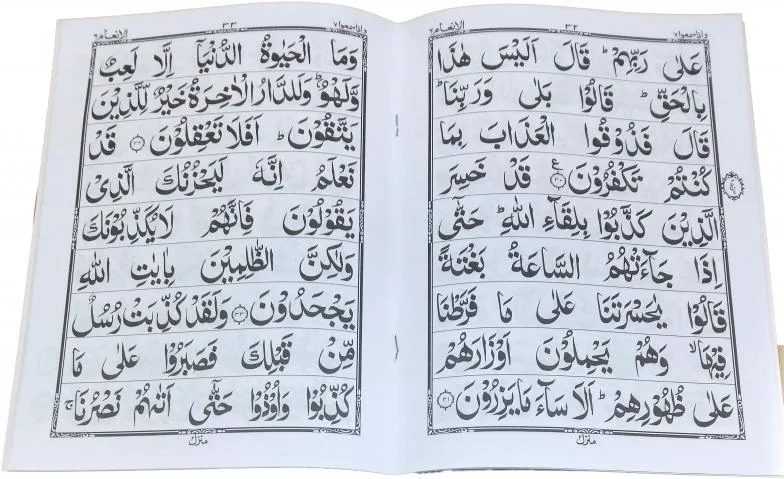 واذا سمعوا ٧ ٣٢ الانعام ٦
عَلٰى رَبِّهِمْ ؕ قَالَ اَلَيْسَ هٰذَا
بِالْحَقِّ ؕ قَالُوْا بَلٰى وَرَبِّنَا ؕ
قَالَ فَذُوْقُوا الْعَذَابَ بِمَا
كُنْتُمْ تَكْفُرُوْنَ ۝٣٠ ع قَدْ خَسِرَ
الَّذِيْنَ كَذَّبُوْا بِلِقَآءِ اللّٰهِ ؕ حَتّٰۤى
اِذَا جَآءَتْهُمُ السَّاعَةُ بَغْتَةً
قَالُوْا يٰحَسْرَتَنَا عَلٰى مَا فَرَّطْنَا
فِيْهَا ۙ وَهُمْ يَحْمِلُوْنَ اَوْزَارَهُمْ
عَلٰى ظُهُوْرِهِمْ ؕ اَلَا سَآءَ مَا يَزِرُوْنَ ۝٣١
منزل
واذا سمعوا ٧ ٣٣ الانعام ٦
وَمَا الْحَيٰوةُ الدُّنْيَاۤ اِلَّا لَعِبٌ
وَّلَهْوٌ ؕ وَلَلدَّارُ الْاٰخِرَةُ خَيْرٌ لِّلَّذِيْنَ
يَتَّقُوْنَ ؕ اَفَلَا تَعْقِلُوْنَ ۝٣٢ قَدْ
نَعْلَمُ اِنَّهٗ لَيَحْزُنُكَ الَّذِيْ
يَقُوْلُوْنَ فَاِنَّهُمْ لَا يُكَذِّبُوْنَكَ
وَلٰكِنَّ الظّٰلِمِيْنَ بِاٰيٰتِ اللّٰهِ
يَجْحَدُوْنَ ۝٣٣ وَلَقَدْ كُذِّبَتْ رُسُلٌ
مِّنْ قَبْلِكَ فَصَبَرُوْا عَلٰى مَا
كُذِّبُوْا وَاُوْذُوْا حَتّٰۤى اَتٰىهُمْ نَصْرُنَا ۚ
منزل